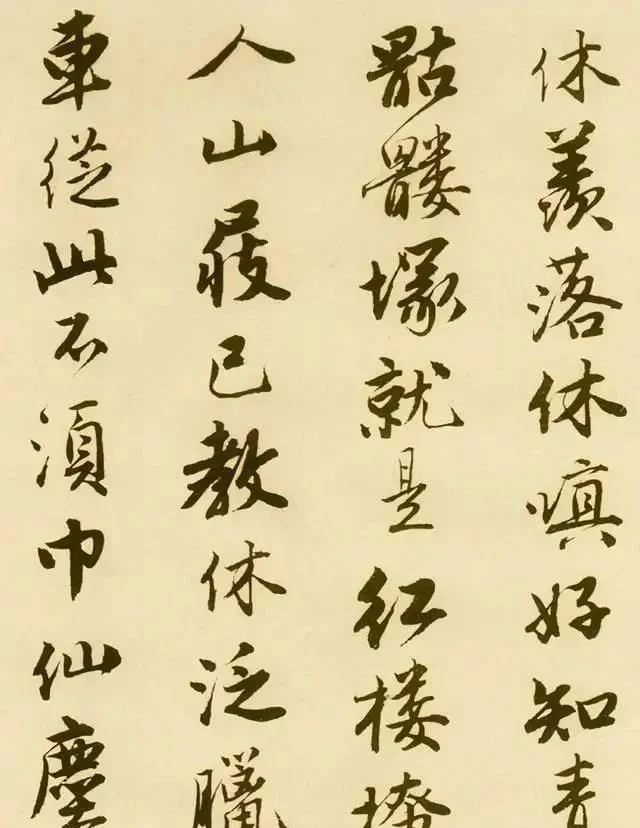 休羨落休嗔好知青
骷髏塚就是紅樓
人山屐已教休泛
車從此不須巾仙塵